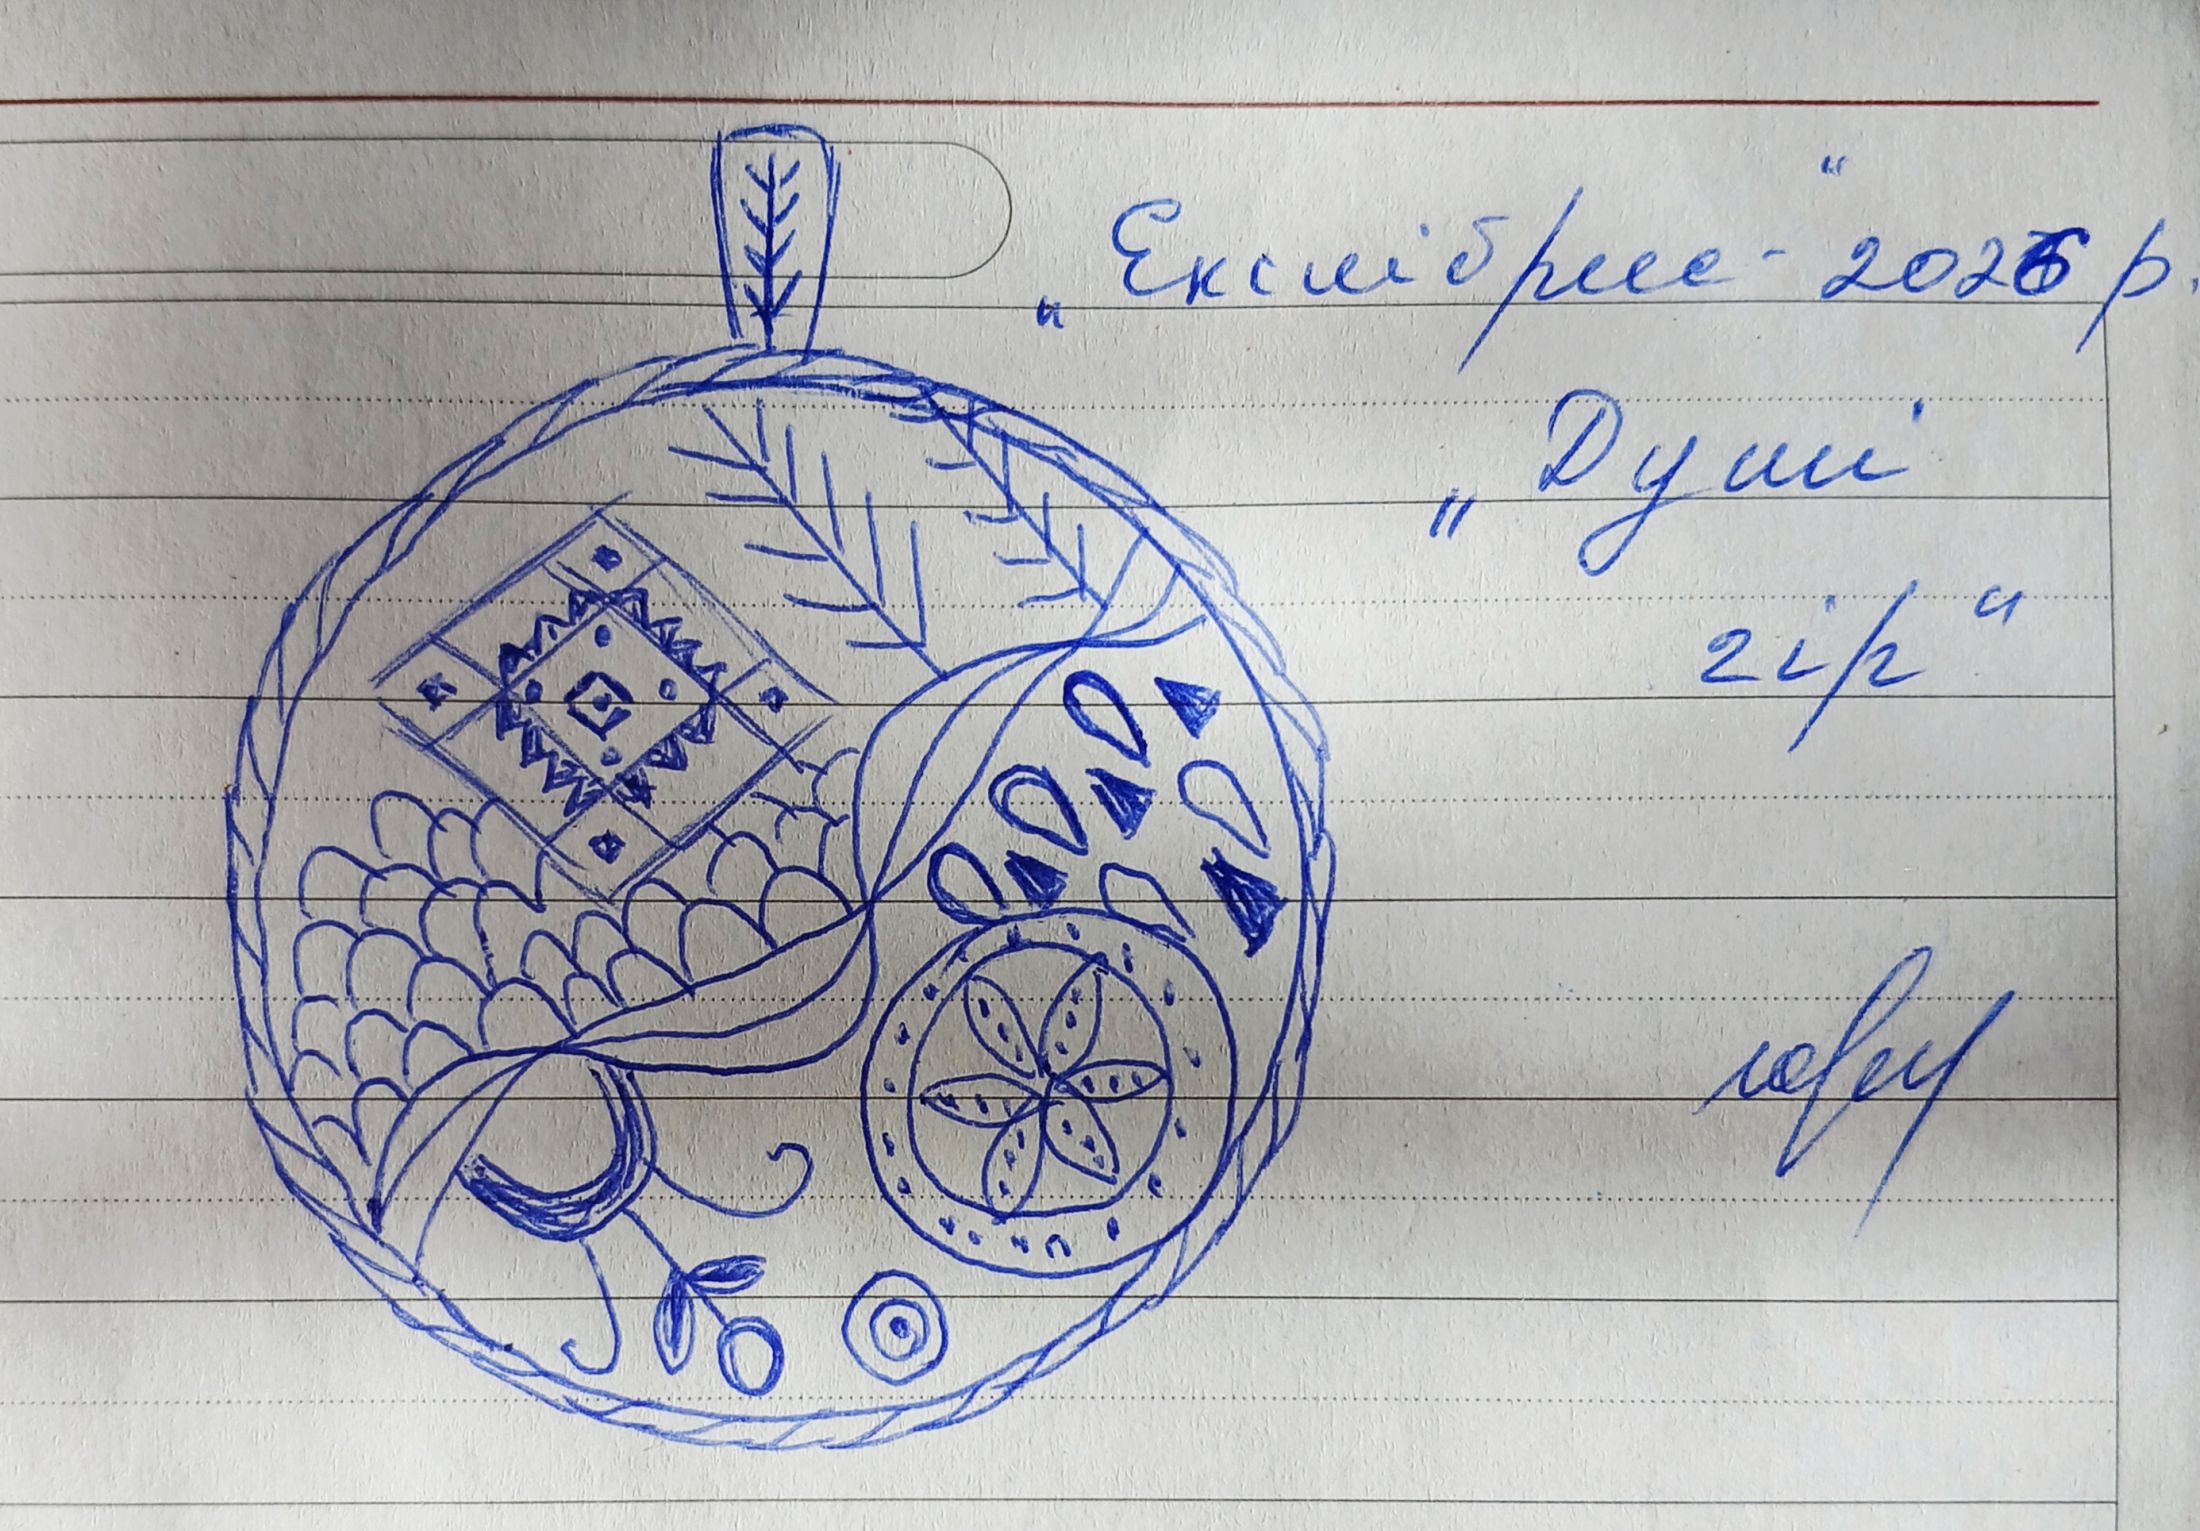 „Екслібрис-“ 2026 р.
„Душі
гір“